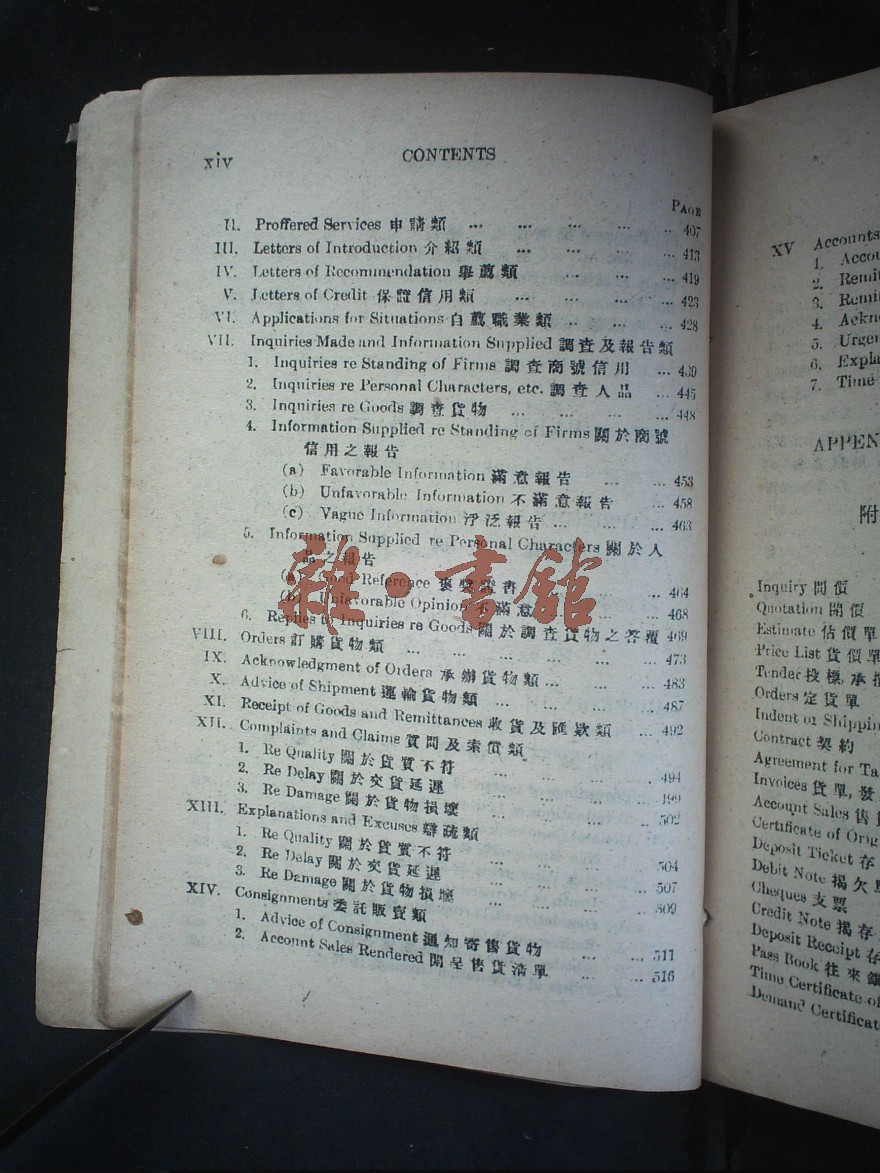 xiv CONTENTS
PAGE
II. Proffered Services 申請類 ... ... ... ... ... 407
III. Letters of Introduction 介紹類 ... ... ... ... 413
IV. Letters of Recommendation 舉薦類 ... ... ... 419
V. Letters of Credit 保證信用類 ... ... ... ... 423
VI. Applications for Situations 自薦職業類 ... ... ... 428
VII. Inquiries Made and Information Supplied 調查及報告類
1. Inquiries re Standing of Firms 調查商號信用 ... 439
2. Inquiries re Personal Characters, etc. 調查人品 ... 445
3. Inquiries re Goods 調查貨物 ... ... ... ... 448
4. Information Supplied re Standing of Firms 關於商號
信用之報告
(a) Favorable Information 滿意報告 ... ... ... 453
(b) Unfavorable Information 不滿意報告 ... 458
(c) Vague Information 浮泛報告 ... ... ... 463
5. Information Supplied re Personal Characters 關於人
品之報告
(a) Good Reference 褒獎 書 ... ... 464
(b) Unfavorable Opinion 不滿意 ... 468
6. Replies to Inquiries re Goods 關於調查貨物之答覆 469
VIII. Orders 訂購貨物類 ... ... ... ... ... 473
IX. Acknowledgment of Orders 承辦貨物類 ... ... ... 483
X. Advice of Shipment 運輸貨物類 ... ... ... ... 487
XI. Receipt of Goods and Remittances 收貨及匯欵類 ... 492
XII. Complaints and Claims 質問及索償類
1. Re Quality 關於貨質不符 ... ... ... 494
2. Re Delay 關於交貨延遲 ... ... ... 499
3. Re Damage 關於貨物損壞 ... ... ... 502
XIII. Explanations and Excuses 辯疏類
1. Re Quality 關於貨質不符 ... ... ... 504
2. Re Delay 關於交貨延遲 ... ... ... 507
3. Re Damage 關於貨物損壞 ... ... ... 509
XIV. Consignments 委託販賣類
1. Advice of Consignment 通知寄售貨物 ... ... 511
2. Account Sales Rendered 開呈售貨清單 ... ... 516
雜·書館
XV Accounts
1. Accou
2. Remit
3. Remi
4. Ackn
5. Urgen
6. Expla
7. Time
APPEN
附
Inquiry 問價
Quotation 開價
Estimate 估價單
Price List 貨價單
Tender 投標, 承
Orders 定貨單
Indent or Shippin
Contract 契約
Agreement for Ta
Invoices 貨單, 發
Account Sales 售
Certificate of Orig
Deposit Ticket 存
Debit Note 揭欠
Cheques 支票
Credit Note 揭存
Deposit Receipt 存
Pass Book 往來
Time Certificate of
Demand Certificat